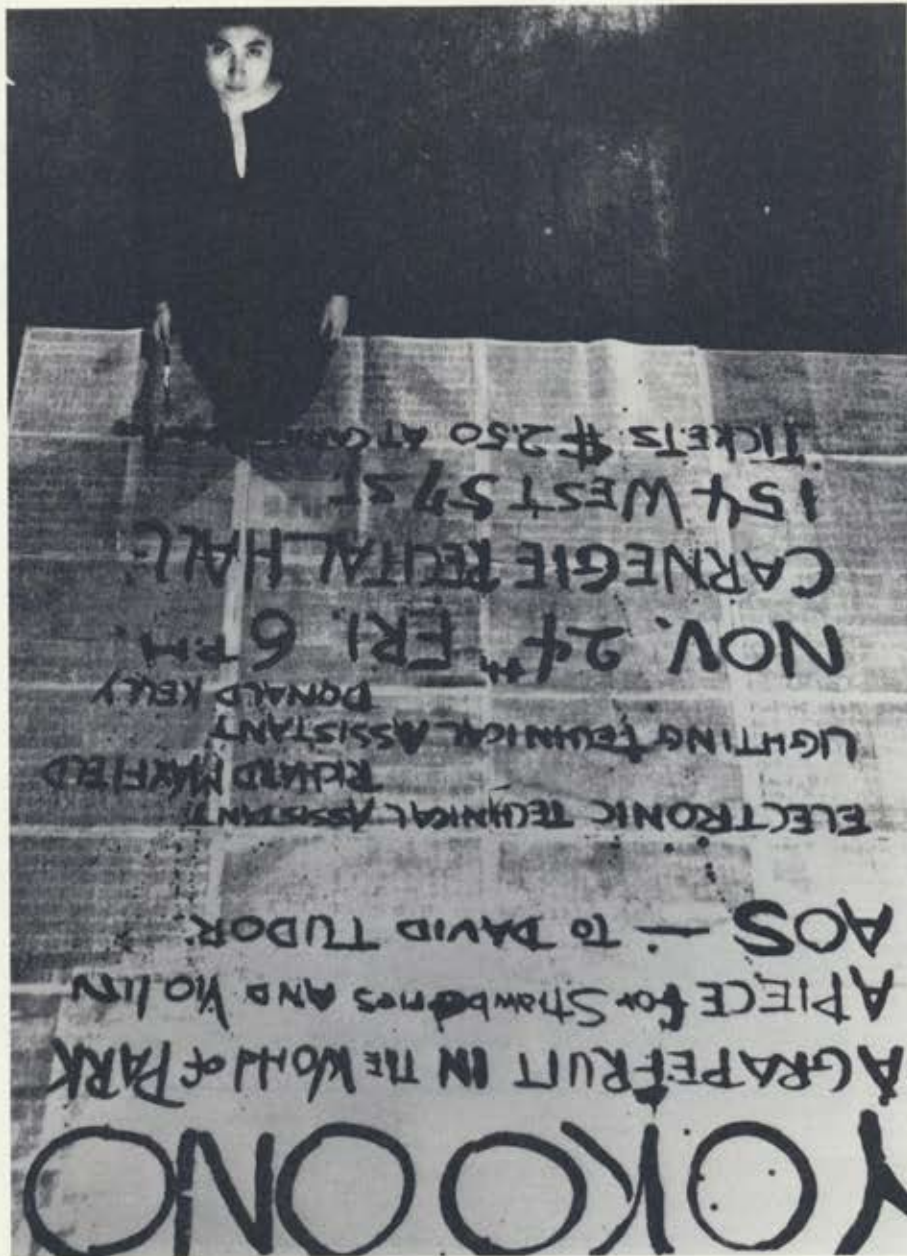 YOKO ONO
A GRAPEFRUIT IN THE WORLD OF PARK
A PIECE for Strawberries AND VIOLIN
AOS — TO DAVID TUDOR
ELECTRONIC TECHNICAL ASSISTANT
RICHARD MAXFIELD
LIGHTING TECHNICAL ASSISTANT
DONALD KELLY
NOV. 24th FRI. 6 P.M.
CARNEGIE RECITAL HALL
154 WEST 57 ST
TICKETS $2.50 AT